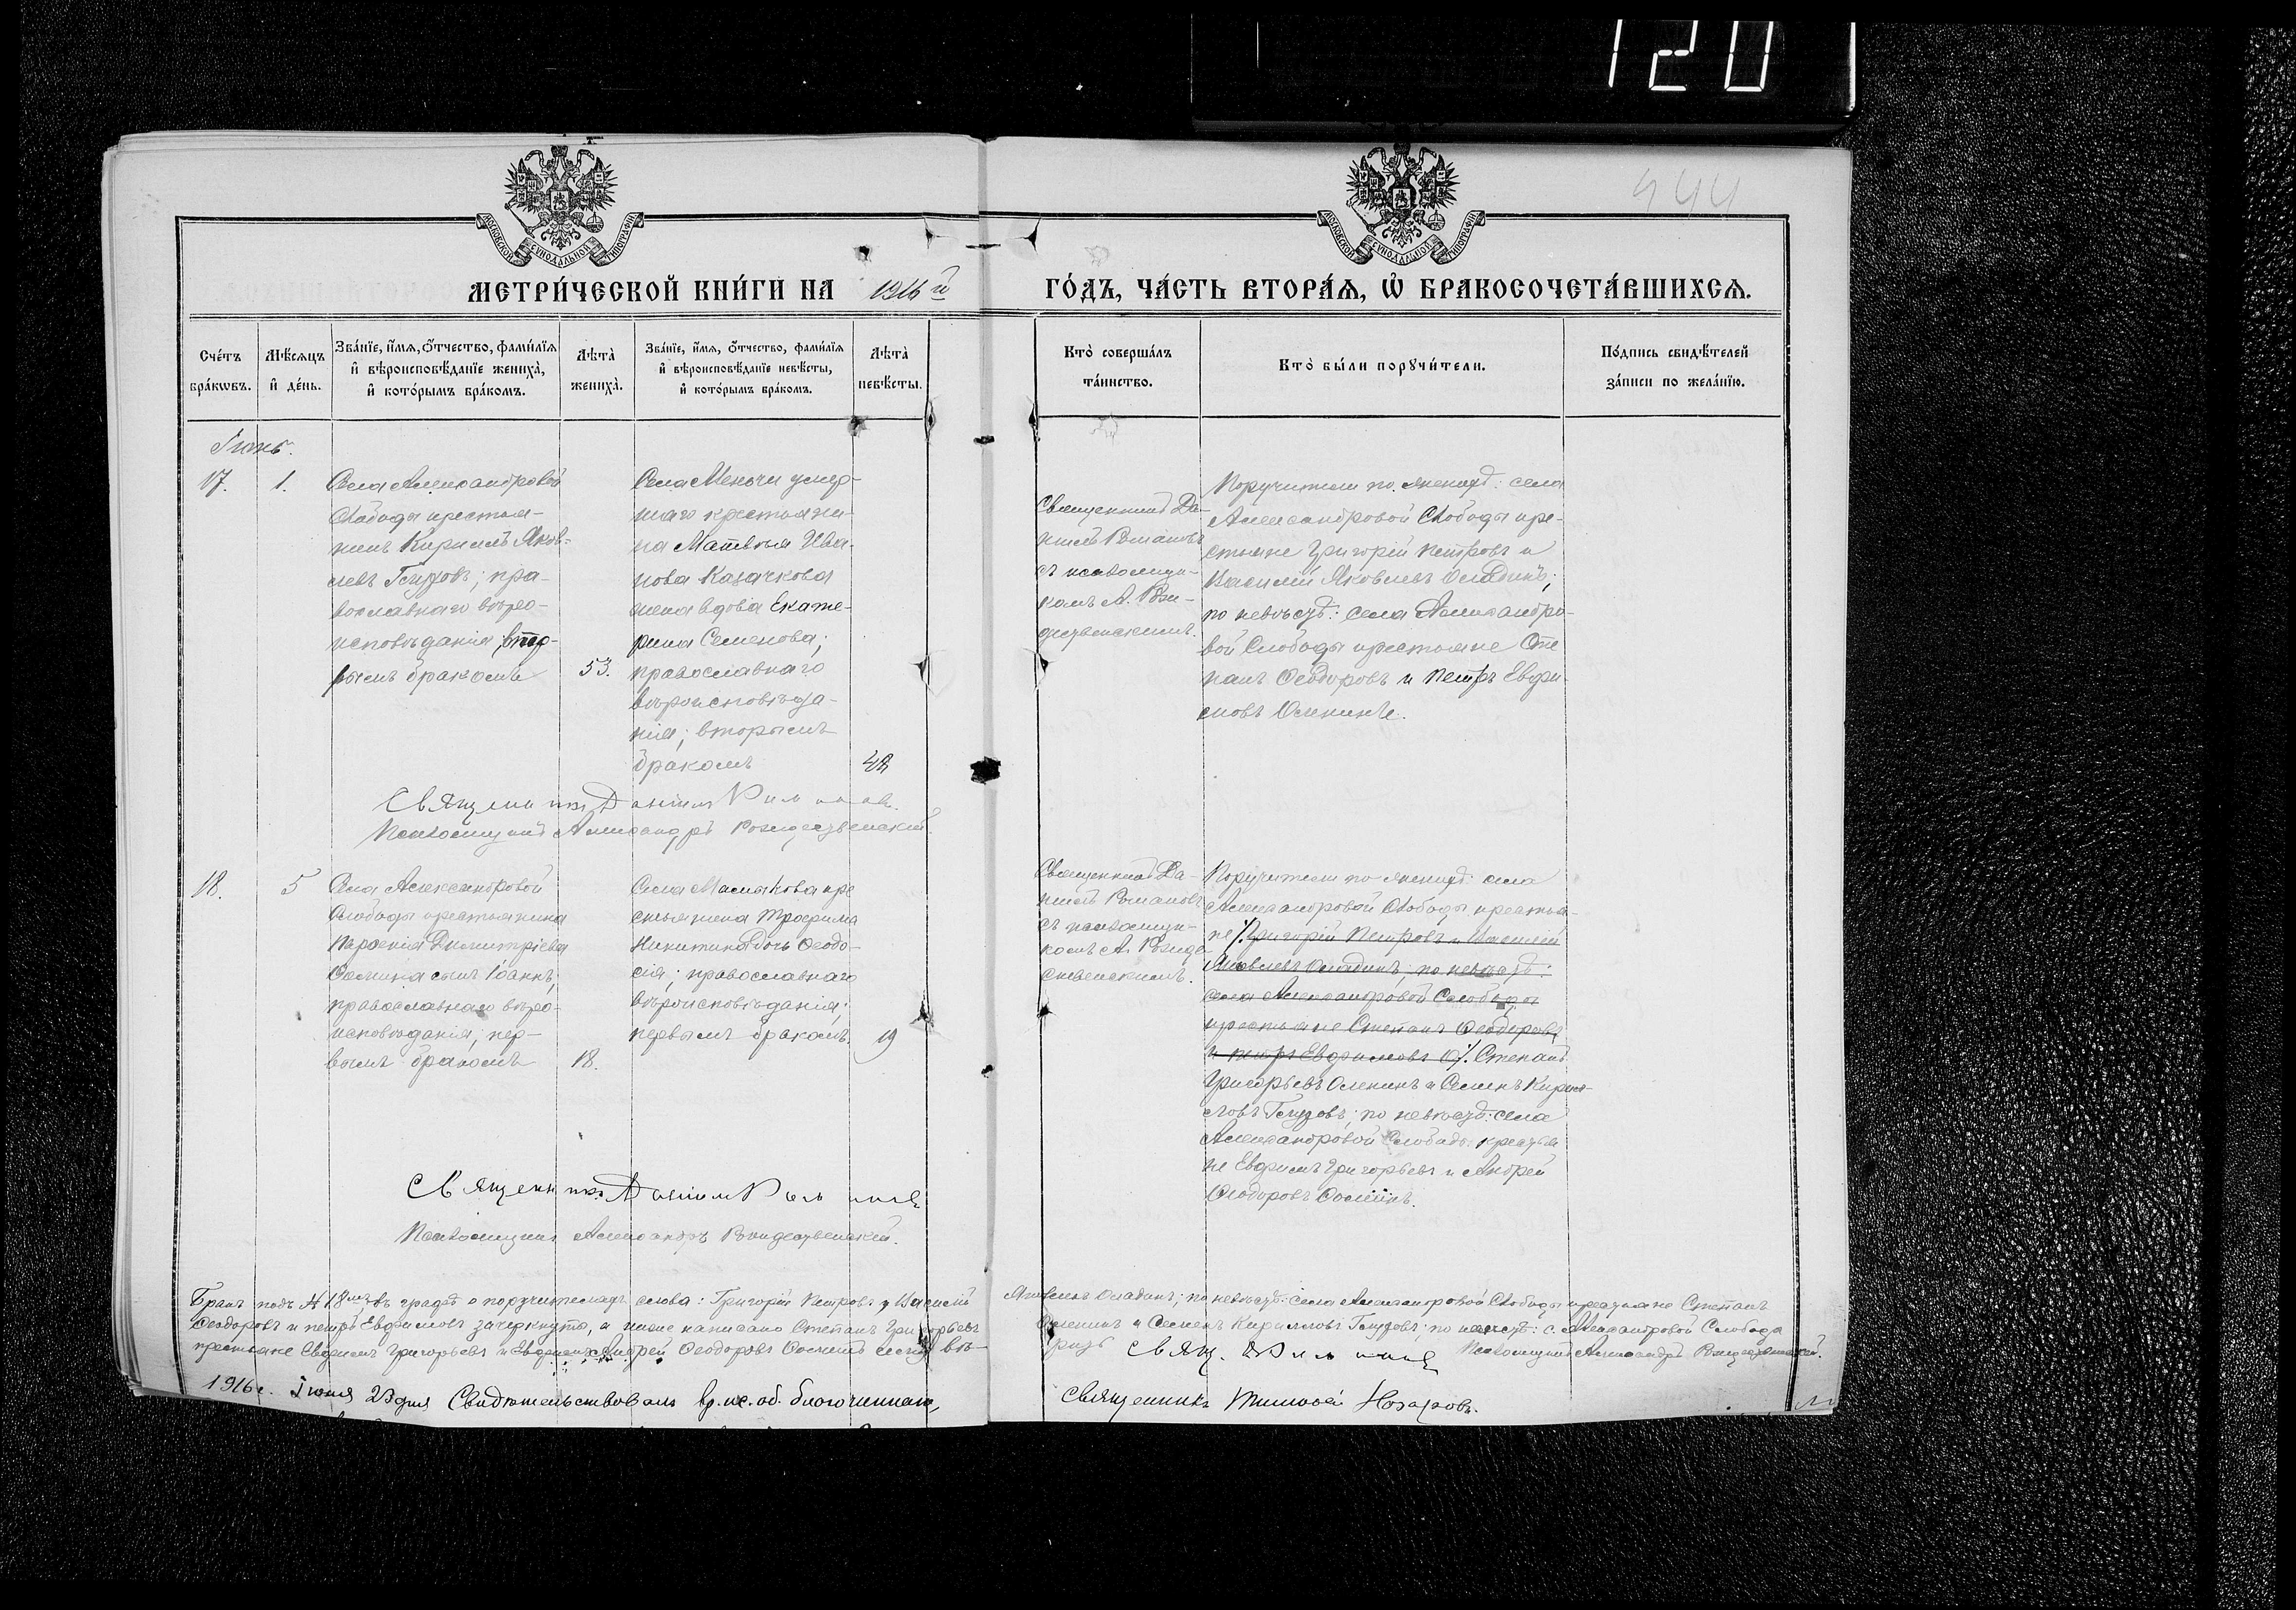 120
444
МОСКОВСКОЙ СѴНОДАЛЬНОЙ ТИПОГРАФІИ
МОСКОВСКОЙ СѴНОДАЛЬНОЙ ТИПОГРАФІИ
МЕТРИ́ЧЕСКОЙ КНИ́ГИ НА 1916й ГО́ДЪ, ЧА́СТЬ ВТОРА́Ѧ, Ѡ҆ БРАКОСОЧЕТА́ВШИХСѦ.
Сче́тъ бра́кѡвъ.
Мѣ́сѧцъ и҆ де́нь.
Зва́нїе, и҆́мѧ, ѻ҆́тчество, фами́лїѧ
и҆ вѣроисповѣ́данїе жениха̀,
и҆ кото́рымъ бра́комъ.
Лѣ́та̀ жениха̀.
Зва́нїе, и҆́мѧ, ѻ҆́тчество, фами́лїѧ
и҆ вѣроисповѣ́данїе невѣ́сты,
и҆ кото́рымъ бра́комъ.
Лѣ́та̀ невѣ́сты.
Кто̀ соверша́лъ
та́инство.
Кто̀ бы́ли порꙋчи́тели.
По́дпись свидѣ́телей
за́писи по жела́нїю.
Іюнь.
17.
1.
Села Александровой
Слободы крестья-
нинъ Кириллъ Яков-
левъ Глуховъ; пра-
вославнаго вѣро-
исповѣданія; вто-
рымъ бракомъ
53.
Села Меньчи умер-
шаго крестьяни-
на Матвѣя Ива-
нова Казачкова
жена вдова Екате-
рина Семенова;
православнаго
вѣроисповѣда-
нія; вторымъ
бракомъ
48
Священникъ Да-
ніилъ Романовъ
съ псаломщи-
комъ А. Рож-
дественскимъ.
Поручители по женихѣ: села
Александровой Слободы кре-
стьяне Григорій Петровъ и
Василій Яковлевъ Оладинъ;
по невѣстѣ: села Александро-
вой Слободы крестьяне Сте
панъ Ѳеодоровъ и Петръ Евфи-
мовъ Оленинъ.
Священникъ Даніилъ Романовъ.
Псаломщикъ Александръ Рождественскій.
18.
5
Села Александровой
Слободы крестьянина
Димитріева
сынъ Іоаннъ,
православнаго вѣро-
исповѣданія; пер-
вымъ бракомъ
18.
Села Маслакова кре
стьянина Трофима
Никитина дочь Ѳеодо-
сія; православнаго
вѣроисповѣданія;
первымъ бракомъ.
19
Священникъ Да-
ніилъ Романовъ
съ псаломщи-
комъ А. Рожде-
ственскимъ.
Поручители по женихѣ: села
Александровой Слободы крестья-
не Григорій Петровъ и Василій
Яковлевъ Оладинъ; по невѣстѣ:
села Александровой Слободы
крестьяне Степанъ Ѳеодоровъ
и Петръ Евфимовъ О Степанъ
Григорьевъ Оленинъ и Семенъ Кирил-
ловъ Глуховъ; по невѣстѣ: села
Александровой Слободы крестья
не Евфимъ Григорьевъ и Андрей
Ѳеодоровъ
Священникъ Даніилъ Романовъ
Псаломщикъ Александръ Рождественскій.
Бракъ подъ № 18мъ въ графѣ о поручителяхъ слова: Григорій Петровъ и Василій Яковлевъ Оладинъ; по невѣстѣ: села Александровой Слободы крестьяне Степанъ
Ѳеодоровъ и Петръ Евфимовъ зачеркнуто, а ниже написано Степанъ Григорьевъ Оленинъ и Семенъ Кирилловъ Глуховъ; по невѣстѣ: с. Александровой Слободы
крестьяне Евфимъ Григорьевъ и Андрей Ѳеодоровъ
Свящ. Романовъ Псаломщикъ Александръ Рождественскій.
1916 г. Іюня 23 дня Свидѣтельствовалъ вр. ис. об. благочиннаго, Священникъ Тимоѳей Назаровъ.